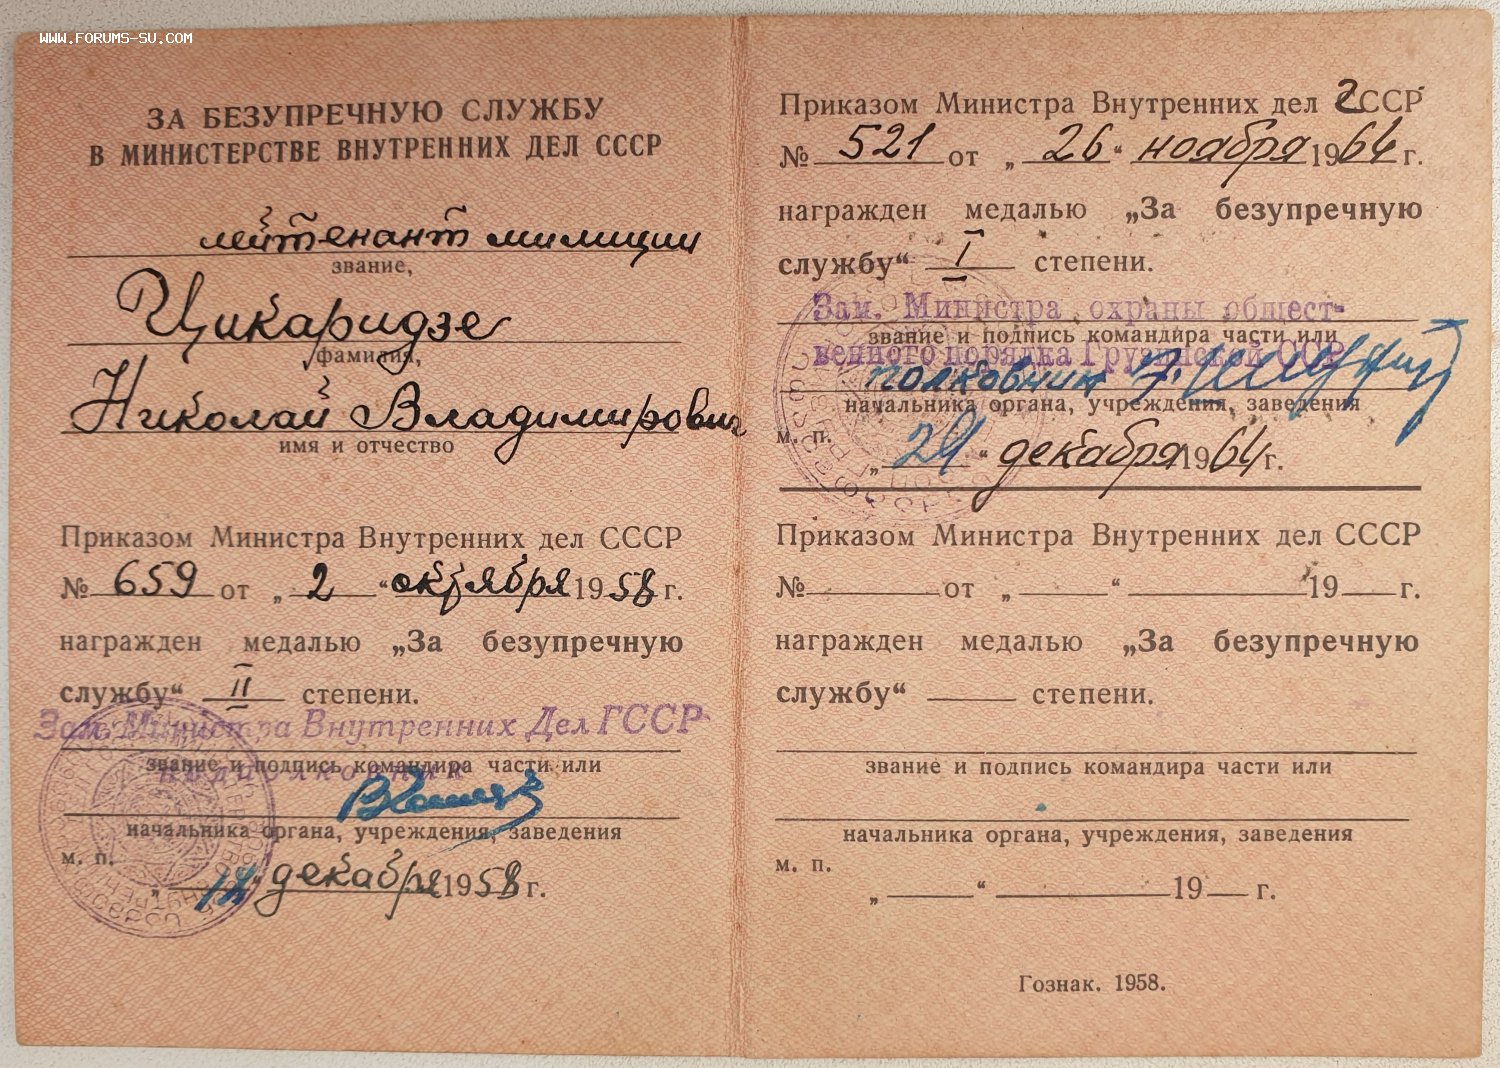 WWW.FORUMS-SU.COM
ЗА БЕЗУПРЕЧНУЮ СЛУЖБУ
В МИНИСТЕРСТВЕ ВНУТРЕННИХ ДЕЛ СССР
лейтенант милиции
звание,
Цикаридзе
фамилия,
Николай Владимирович
имя и отчество
Приказом Министра Внутренних дел СССР
№ 659 от „ 2 “ октября 1958 г.
награжден медалью „За безупречную
службу“ II степени.
Зам. Министра Внутренних Дел ГССР
звание и подпись командира части или
подполковник
начальника органа, учреждения, заведения
м. п.
„ “ декабря 1958 г.
Приказом Министра Внутренних дел ГССР
№ 521 от „ 26 “ ноября 1964 г.
награжден медалью „За безупречную
службу“ I степени.
Зам. Министра охраны общест-
звание и подпись командира части или
венного порядка Грузинской ССР
полковник
начальника органа, учреждения, заведения
м. п.
„ 29 “ декабря 1964 г.
Приказом Министра Внутренних дел СССР
№ от „ “ 19 г.
награжден медалью „За безупречную
службу“ степени.
звание и подпись командира части или
начальника органа, учреждения, заведения
м. п.
„ “ 19 г.
Гознак. 1958.